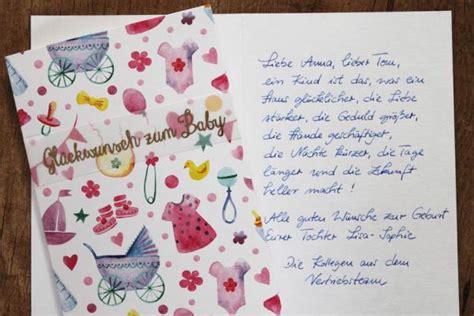 Glückwunsch zum Baby
Liebe Anna, lieber Tom,
ein Kind ist das, was ein
Haus glücklicher, die Liebe
stärker, die Geduld größer,
die Hände geschäftiger,
die Nächte kürzer, die Tage
länger und die Zukunft
heller macht!
Alle guten Wünsche zur Geburt
Eurer Tochter Lisa-Sophie
Die Kollegen aus dem
Vertriebsteam